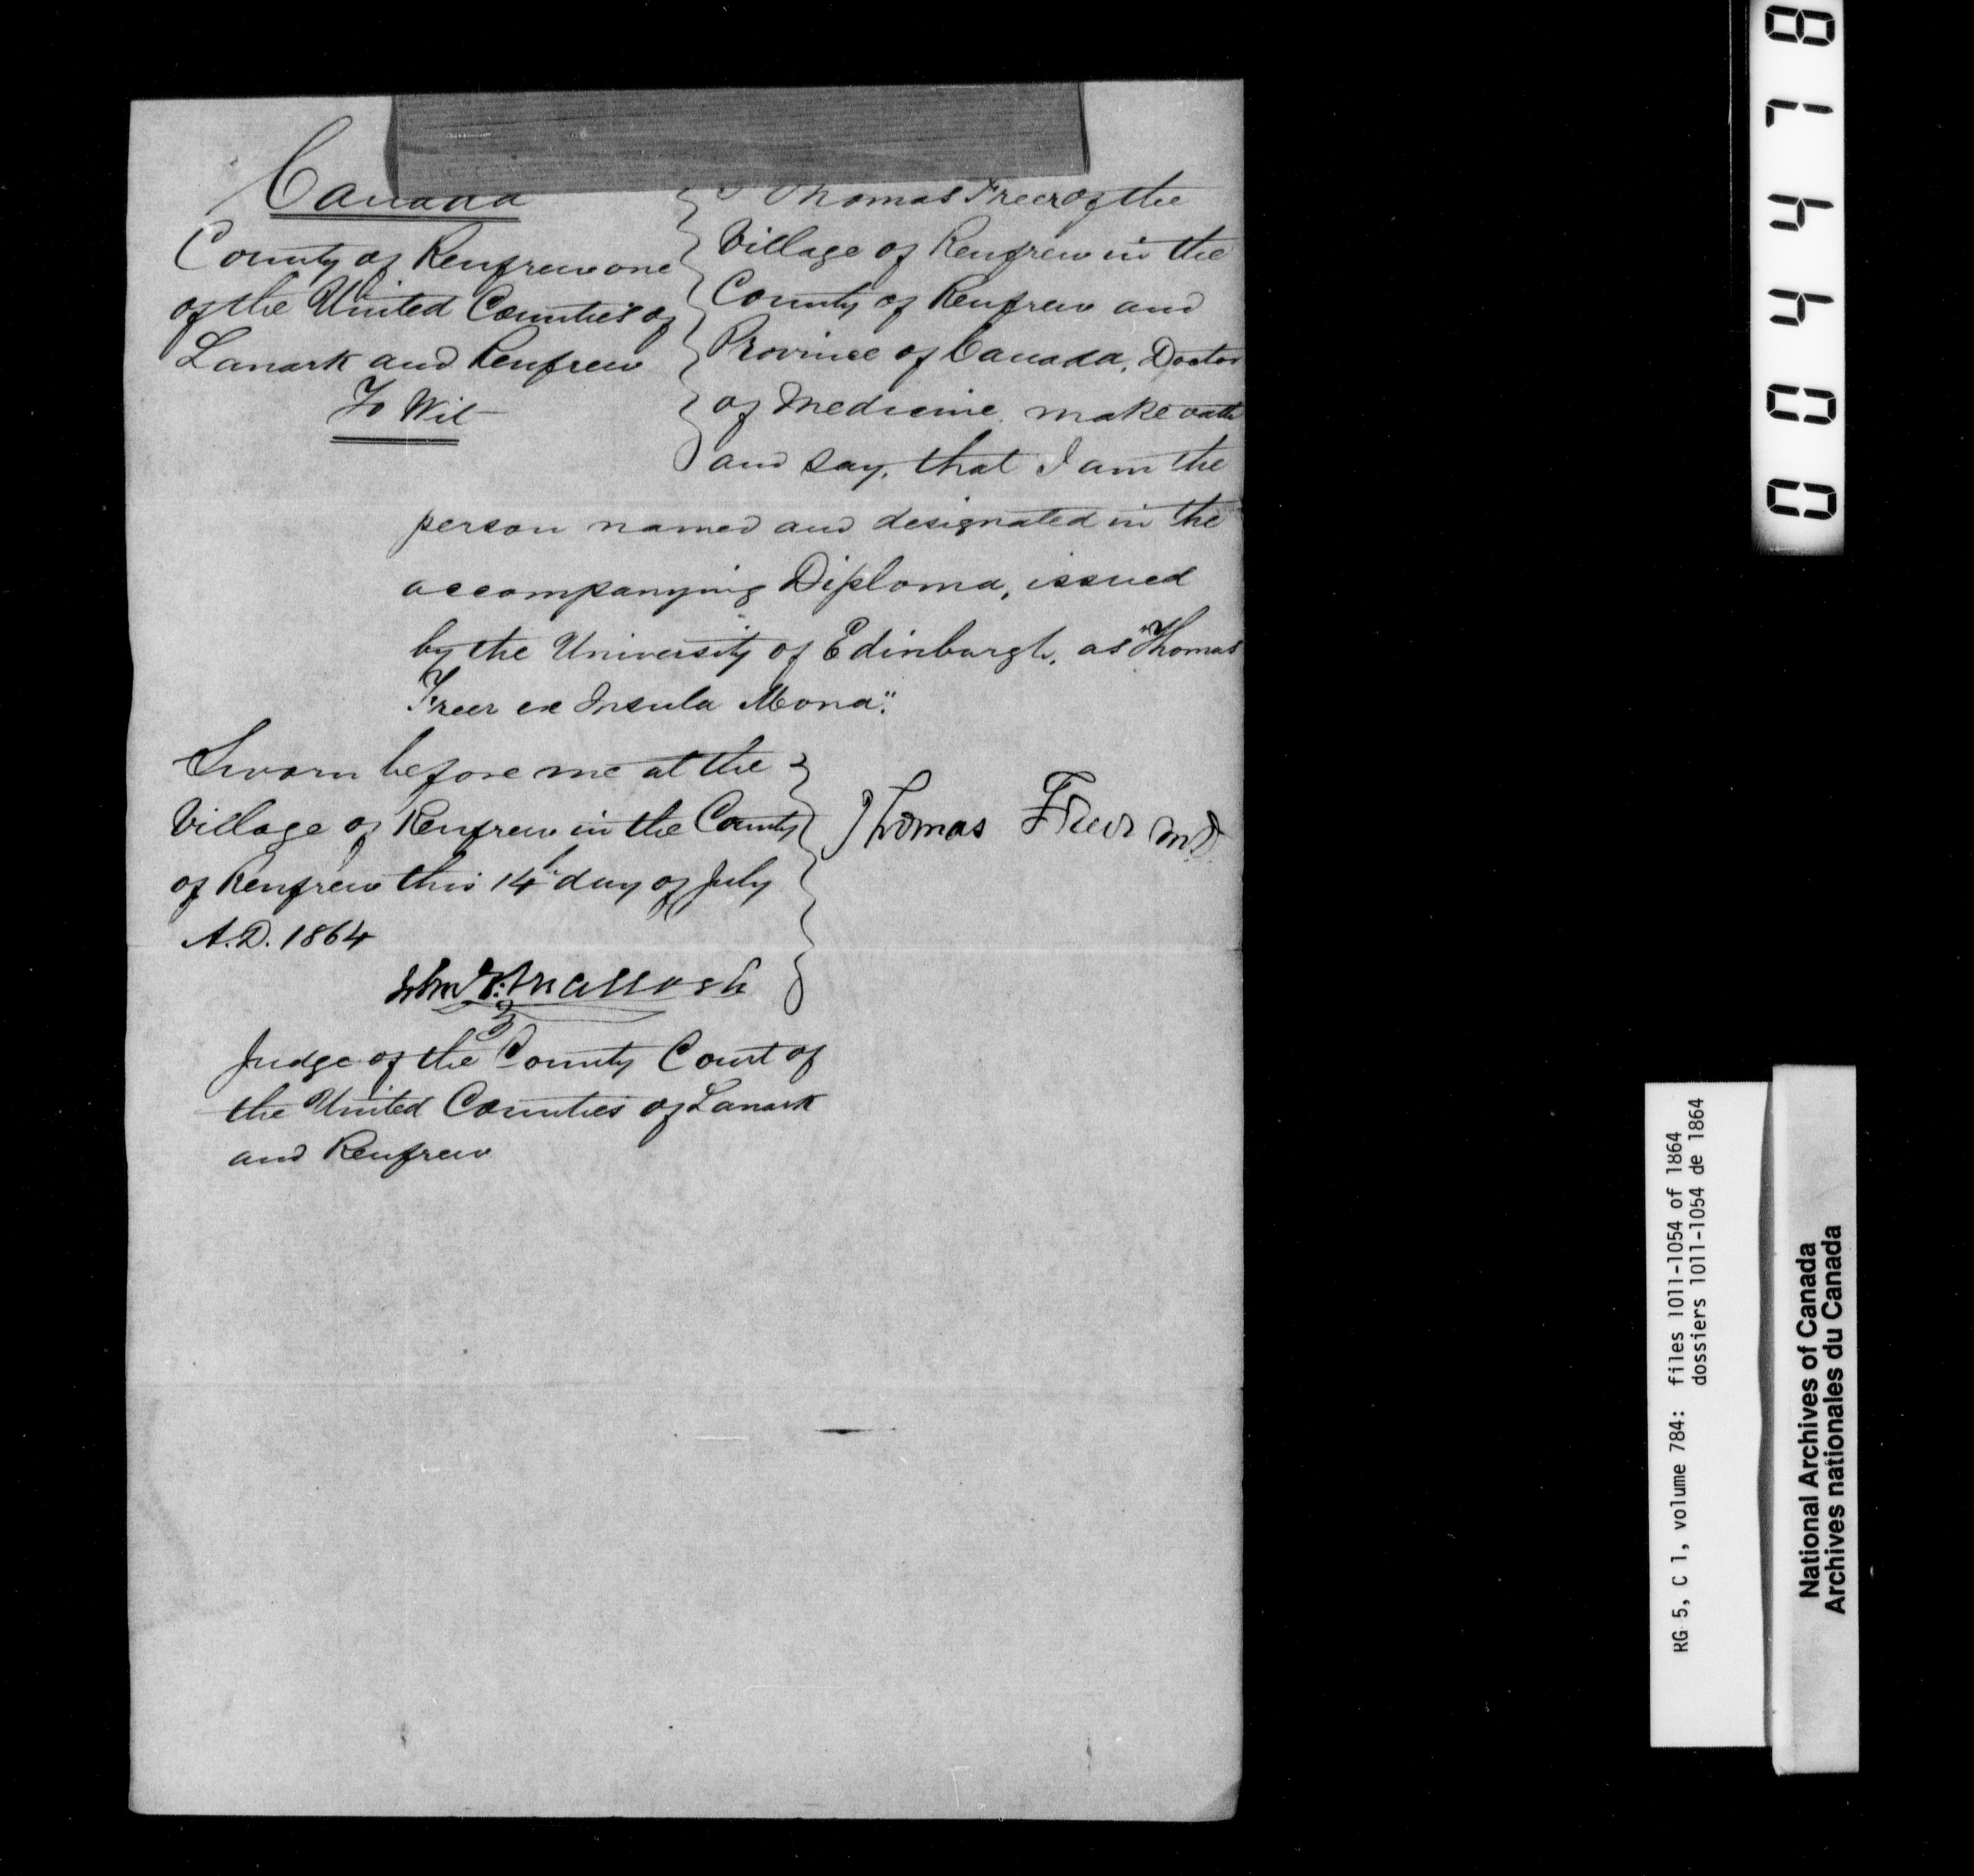 Canada
County of Renfrew one
of the United Counties of
Lanark and Renfrew
To Wit
I Thomas Freer of the
Village of Renfrew in the
County of Renfrew and
Province of Canada, Doctor
of Medicine, make oath
and say, that I am the
person named and designated in the
accompanying Diploma, issued
by the University of Edinburgh, as "Thomas
Freer ex Insula Mona".
Sworn before me at the
Village of Renfrew in the County
of Renfrew this 14th day of July
A.D. 1864
Thomas Freer M.D.
John
Judge of the County Court of
the United Counties of Lanark
and Renfrew
004478
RG 5, C 1, volume 784: files 1011-1054 of 1864
dossiers 1011-1054 de 1864
National Archives of Canada
Archives nationales du Canada